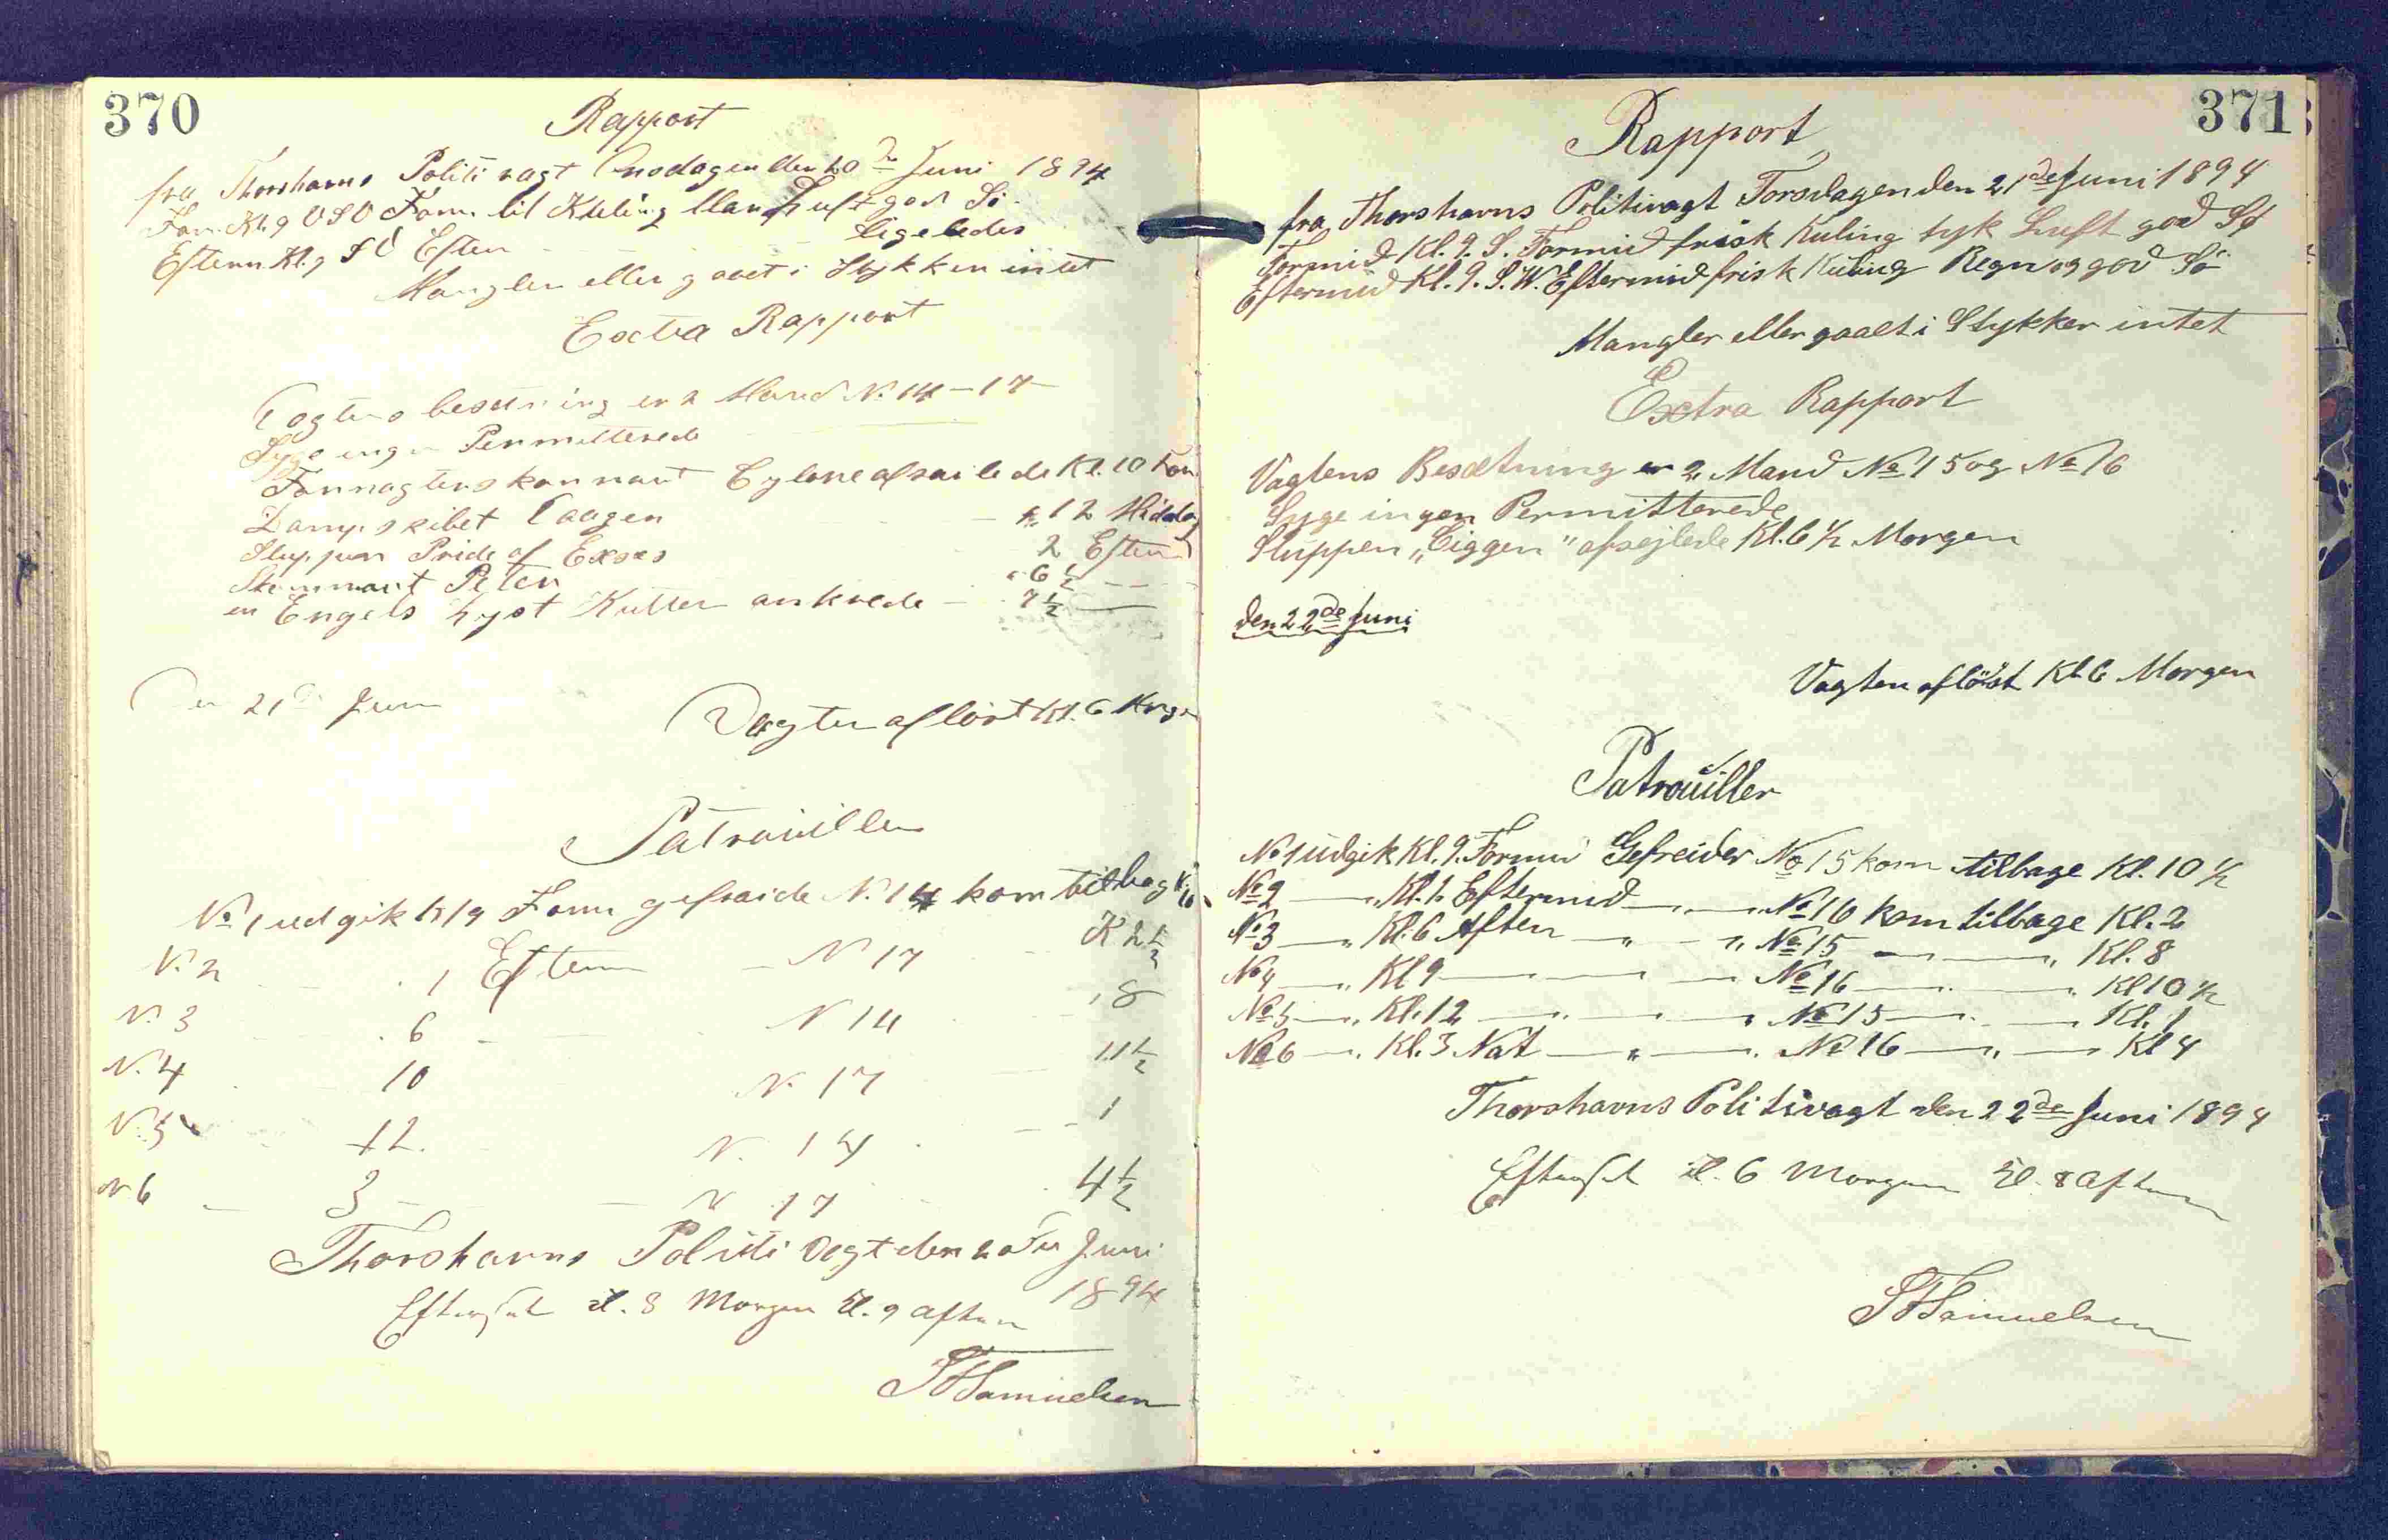 370
Rapport
fra Thorshavns Politivagt Onsdagen den 20de Juni 1894
Form. Kl. 9 OSO Form. lil Kuling klar Luft god Sö
Efterm Kl. 9 SO Efterm ligeledes
Mangler eller gaaet i Stykker intet
Extra Rapport
Vagtens besetning er 2 Mand N. 14 – 17
Syge ingen Permitterede
Dampskibet Vaagen " 12 Middag
Sluppen Pride of Exses 2 Efterm
Skonnart Peter " 6½
en Engels Lyst Kutter ankrede 7½
Den 21de Juni
Vagten aflöst Kl. 6 Morgen
Patrouiller
No 1 udgik Kl 9 Form gefraide N. 14 kom tilbag Kl. 10
N. 2 1 Efterm N 17 K 2½
N. 3 6 N 14 8
N. 4 10 N. 17 11½
N. 5 12. N. 14 1
N 6 3 N 17 4½
Thorshavns Politi Vagt den 20de Juni
1894
Efterset Kl. 8 Morgen Kl. 9 aften
Samuelsen
371
Rapport
fra Thorshavns Politivagt Torsdagen den 21de Juni 1894
Formid Kl. 9. S. Formid frisk Kuling tyk Luft god Sø
Eftermid Kl. 9. S.W. Eftermid frisk Kuling Regn og god Sö
Mangler eller gaaet i Stykker intet
Extra Rapport
Vagtens Besætning er 2 Mand No 15 og No 16
Syge ingen Permitterede
Sluppen „Ciggen" afsejlede Kl. 6 ½ Morgen
den 22de Juni
Vagten aflöst Kl. 6 Morgen
Patrouiller
No 1 udgik Kl. 9. Formid Gefreider No 15 kom tilbage Kl. 10 ½
No 2 — " Kl. 1 Eftermid — " — No 16 kom tilbage Kl. 2
No 3 — " Kl. 6 Aften — " — " No 15 — — " Kl. 8
No 4 — " Kl 9 — — — No 16 — — " Kl 10 ½
No 5 — " Kl. 12 — — " No 15 — — Kl. 1
No 6 — " Kl. 3 Nat — " — " No 16 — " — Kl 4
Thorshavns Politivagt den 22de Juni 1894
Efterset Kl. 6 Morgen Kl. 8 aften
Samuelsen